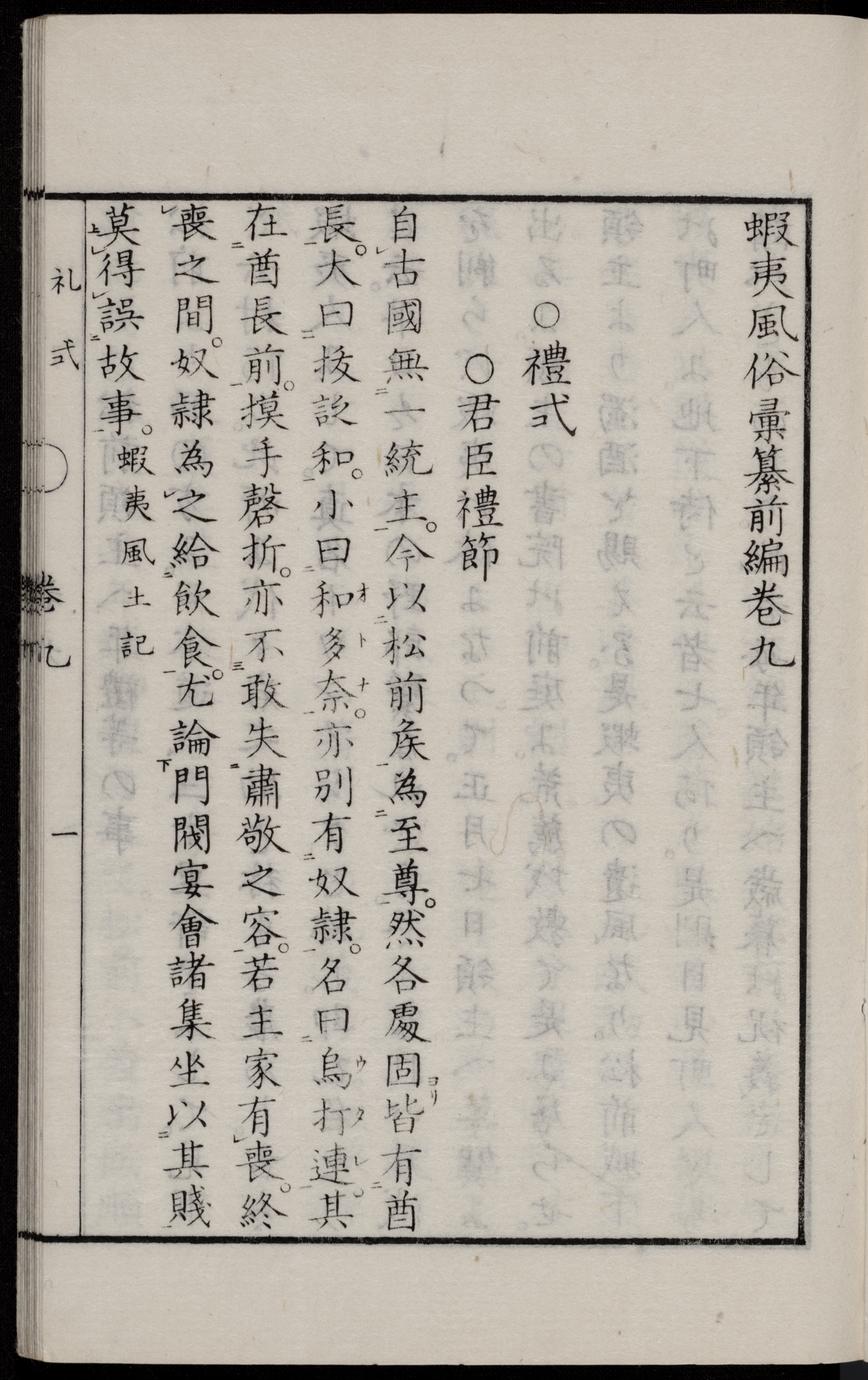 蝦夷風俗彙纂前編巻九
○禮式
○君臣禮節
自古國無一統主。今以松前矦為至尊。然各處固ヨリ皆有酋
長。大曰抜訟和。小曰和多奈オトナ。亦別有奴隷。名曰烏打連ウタレ。其
在酋長前。摸手磬折。亦不敢失肅敬之容。若主家有喪。終
喪之間。奴隷為之給飲食。尤論門閥宴會諸集坐以其賤
莫得誤故事。蝦夷風土記
礼式
巻九
一